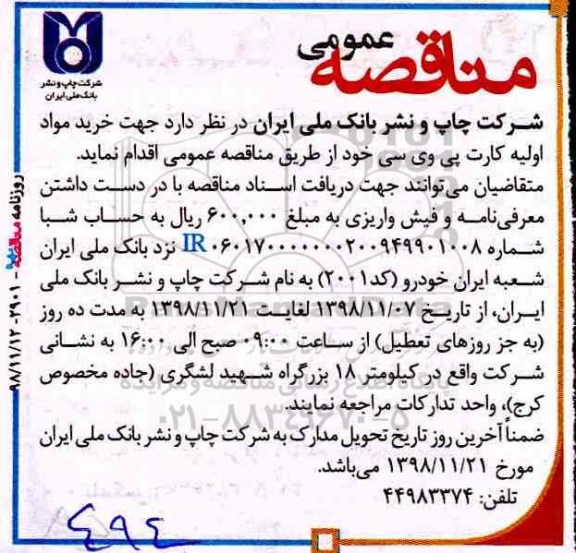 مناقصه عمومی
شرکت چاپ و نشر
بانک ملی ایران
شـرکت چاپ و نشر بانک ملی ایران در نظر دارد جهت خرید مواد
اولیه کارت پی وی سی خود از طریق مناقصه عمومی اقدام نماید.
متقاضیان می‌توانند جهت دریافت اسناد مناقصه با در دست داشتن
معرفی‌نامـه و فیش واریزی به مبلغ ۶۰۰,۰۰۰ ریال به حساب شـبا
شماره IR ۰۶۰۱۷۰۰۰۰۰۰۰۲۰۰۹۴۹۹۰۱۰۰۸ نزد بانک ملی ایران
شـعبه ایران خودرو (کد۲۰۰۱) به نام شـرکت چاپ و نشـر بانک ملی
ایـران، از تاریـخ ۱۳۹۸/۱۱/۰۷ لغایـت ۱۳۹۸/۱۱/۲۱ به مدت ده روز
(به جز روزهای تعطیل) از سـاعت ۰۹:۰۰ صبح الی ۱۶:۰۰ به نشـانی
شـرکت واقع در کیلومتر ۱۸ بزرگراه شـهید لشگری (جاده مخصوص
کرج)، واحد تدارکات مراجعه نمایند.
ضمناً آخرین روز تاریخ تحویل مدارک به شرکت چاپ و نشر بانک ملی ایران
مورخ ۱۳۹۸/۱۱/۲۱ می‌باشد.
تلفن: ۴۴۹۸۳۳۷۴
روزنامه مناقصه - ۲۹۰۱ - ۹۸/۱۱/۱۲
۰۲۱-۸۸۳۴۹۶۷۰-۵
۴۹۴